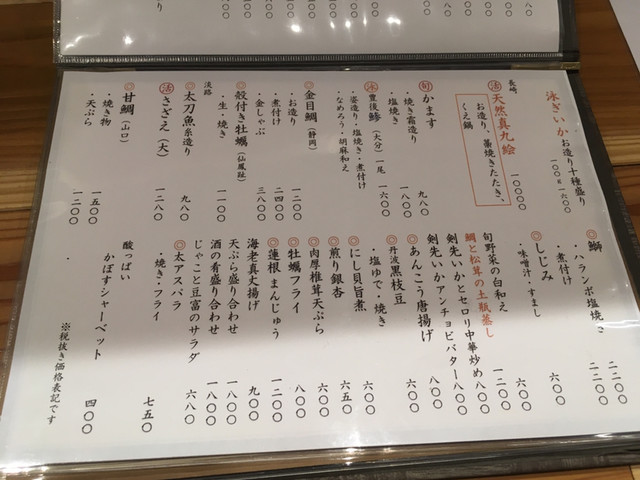 泳ぎいか お造り十種盛り
一〇〇g 一六〇〇
長崎
活 天然真九絵
お造り、藁焼きたたき、
くえ鍋
一〇〇〇〇
旬 かます
・焼き霜造り 九八〇
・塩焼き 一八〇〇
泳 豊後鯵(大分)一尾 一六〇〇
・姿造り・塩焼き・煮付け
・なめろう・胡麻和え
◎金目鯛(静岡)
・お造り 一二〇〇
・煮付け 二四〇〇
・金しゃぶ 三八〇〇
◎殻付き牡蠣(仙鳳趾)
・生・焼き 一一〇〇
淡路
◎太刀魚糸造り 九八〇
活 さざえ(大) 一二八〇
◎甘鯛(山口)
・焼き物 一五〇〇
・天ぷら 一二〇〇
◎鰤
・ハランボ塩焼き 二二〇〇
・煮付け 二二〇〇
◎しじみ 六〇〇
・味噌汁・すまし 六〇〇
旬野菜の白和え
鯛と松茸の土瓶蒸し 一二〇〇
剣先いかとセロリ中華炒め 八〇〇
剣先いかアンチョビバター 八〇〇
◎あんこう唐揚げ 八〇〇
◎丹波黒枝豆 六〇〇
・塩ゆで・焼き
◎にし貝旨煮 六〇〇
◎煎り銀杏 六五〇
◎肉厚椎茸天ぷら 六〇〇
◎牡蠣フライ 八〇〇
◎蓮根まんじゅう 一二〇〇
海老真丈揚げ 九〇〇
天ぷら盛り合わせ 一八〇〇
酒の肴盛り合わせ 一八〇〇
じゃこと豆富のサラダ 六八〇
◎太アスパラ
・焼き・フライ 七五〇
酸っぱい
かぼすシャーベット 四〇〇
※税抜き価格表記です